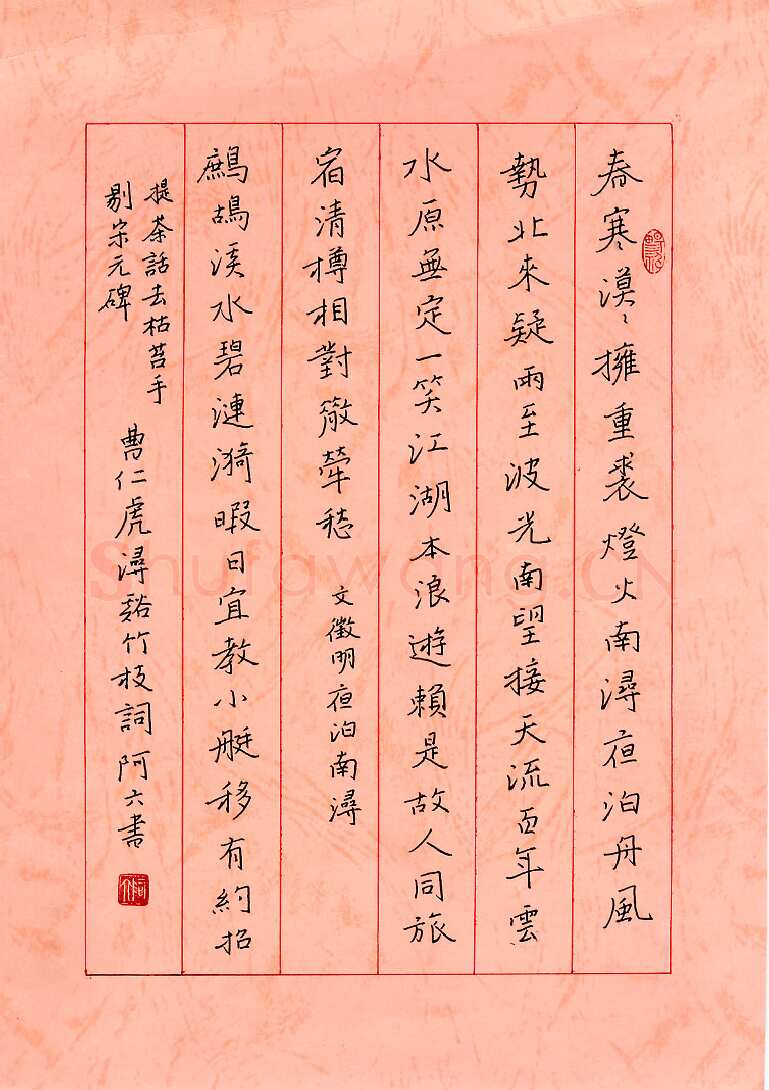 春寒漠〻擁重裘燈火南潯夜泊舟風
勢北來疑雨至波光南望接天流百年雲
水原無定一笑江湖本浪遊賴是故人同旅
宿清樽相對散牢愁 文徵明夜泊南潯
鷓鴣溪水碧漣漪暇日宜教小艇移有約招
提茶話去枯苔手
剔宋元碑
曹仁虎潯谿竹枝詞阿六書
Shufawang.CN